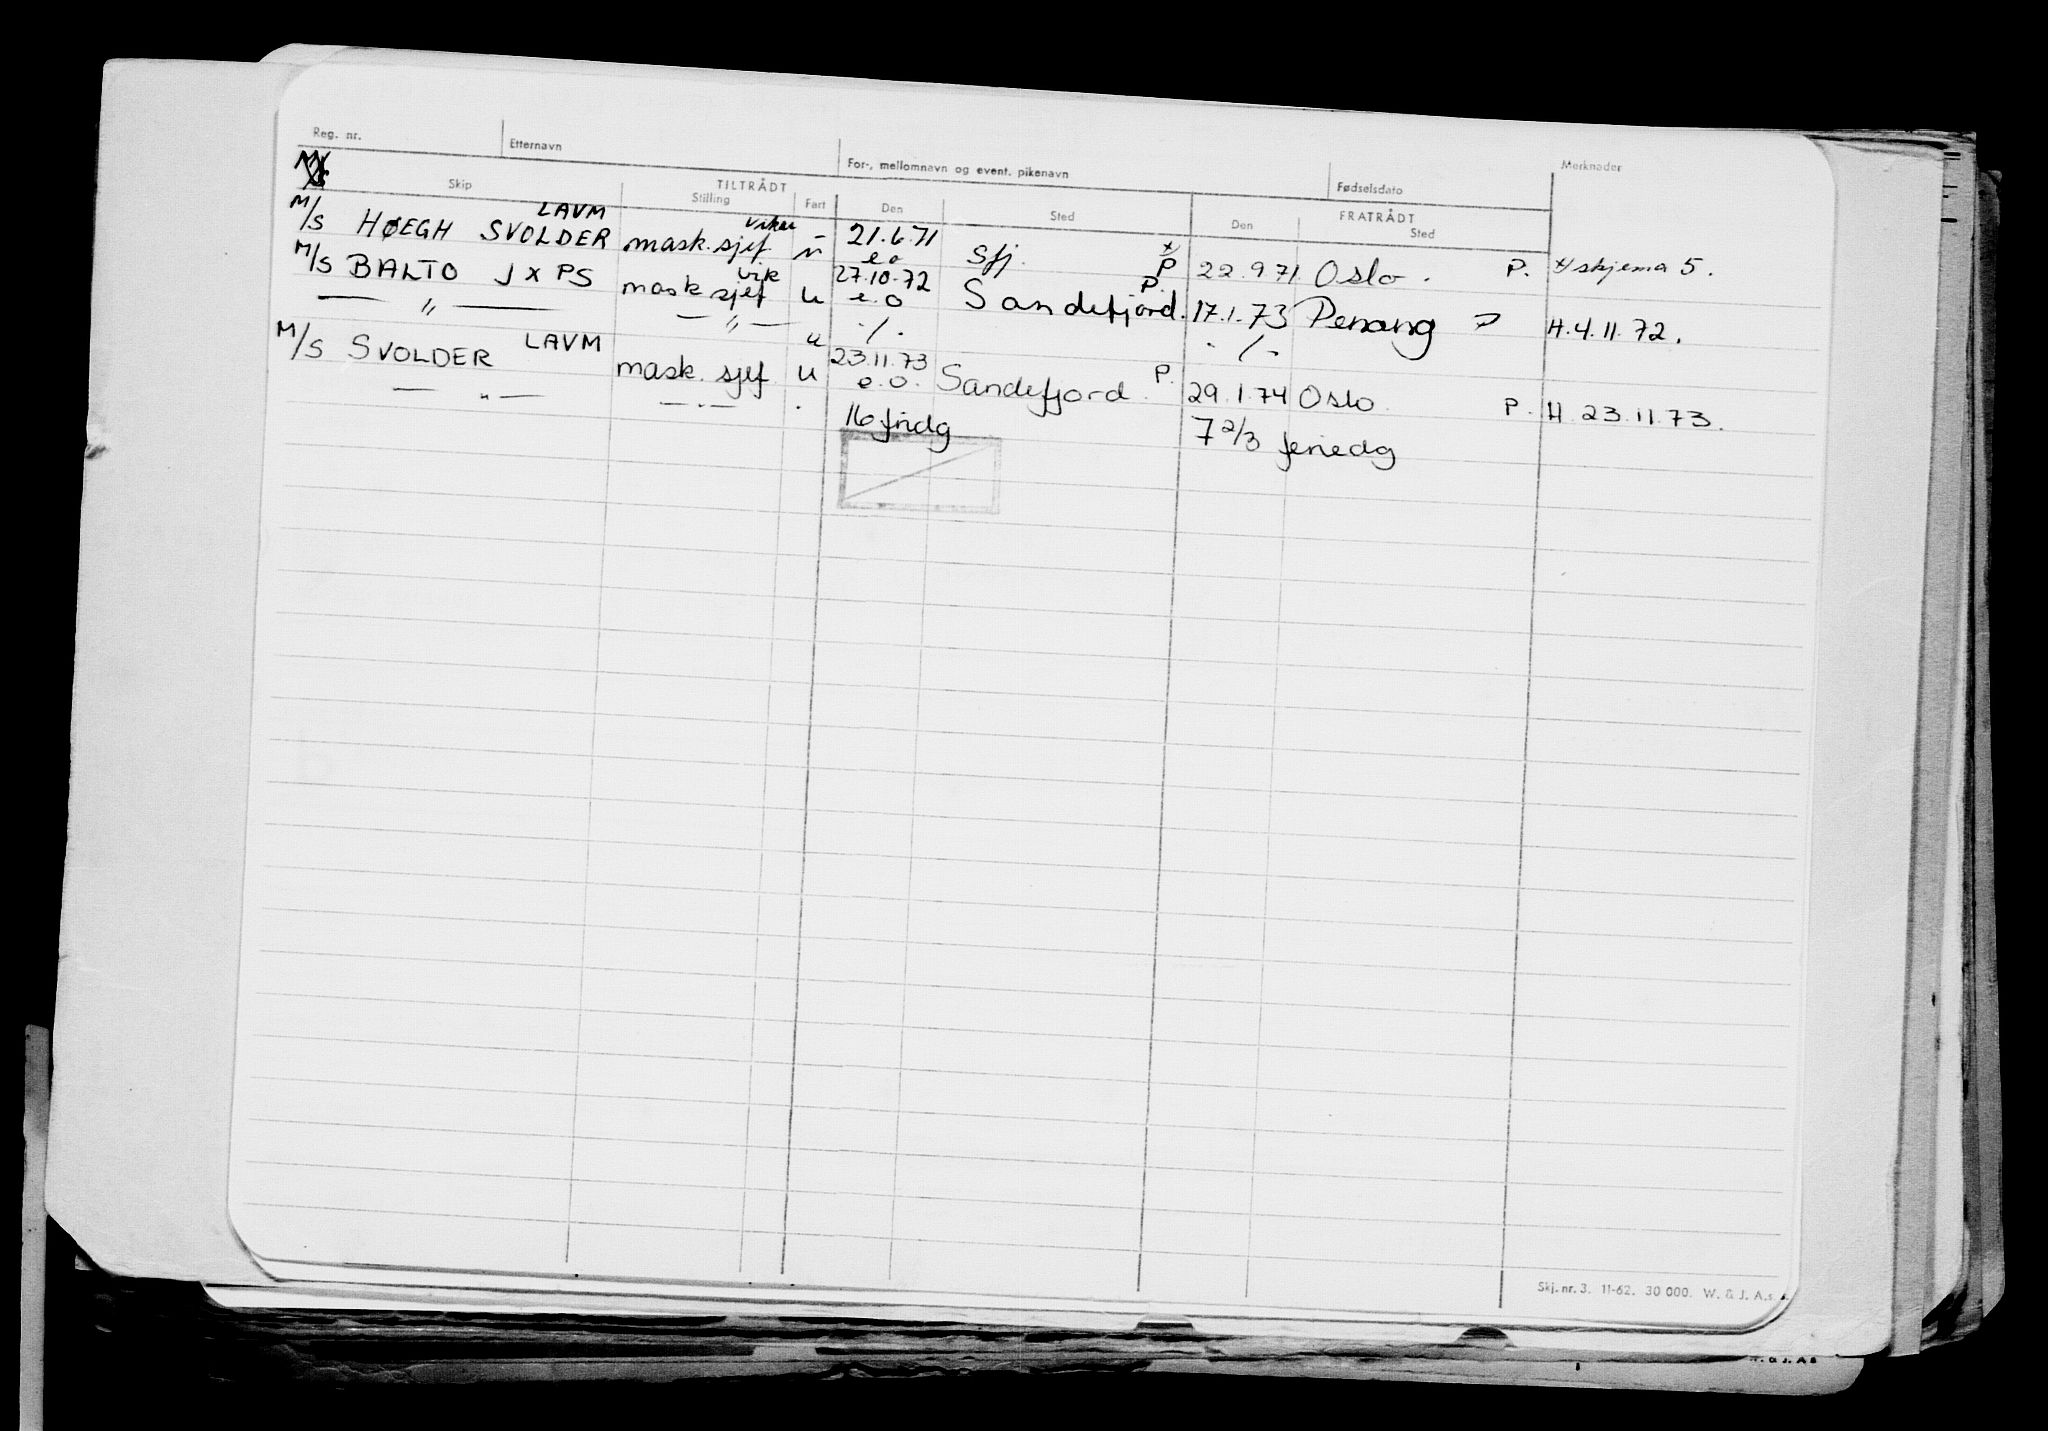 Reg. nr. Etternavn For-, mellomnavn og event. pikenavn Fødselsdato Merknader
TILTRÅDT FRATRÅDT
Skip Stilling Fart Den Sted Den Sted
LAVM vikar
M/S HØEGH SVOLDER mask. sjef. u 21.6.71 Sfj. x/ P 22.9.71 Oslo. P. x/ skjema 5.
e o
M/S BALTO JXPS mask sjef vik u 27.10.72 Sandefjord. P. 17.1.73 Penang P H.4.11.72.
e.o
— " — — " — u ./. ./.
LAVM
M/S SVOLDER mask. sjef u 23.11.73 Sandefjord. P. 29.1.74 Oslo. P. H. 23.11.73.
e.o.
— " — — " —
16 fridg 7 2/3 feriedg
Skj. nr. 3. 11-62. 30 000. W. & J. A.s.
W. & J. A.s